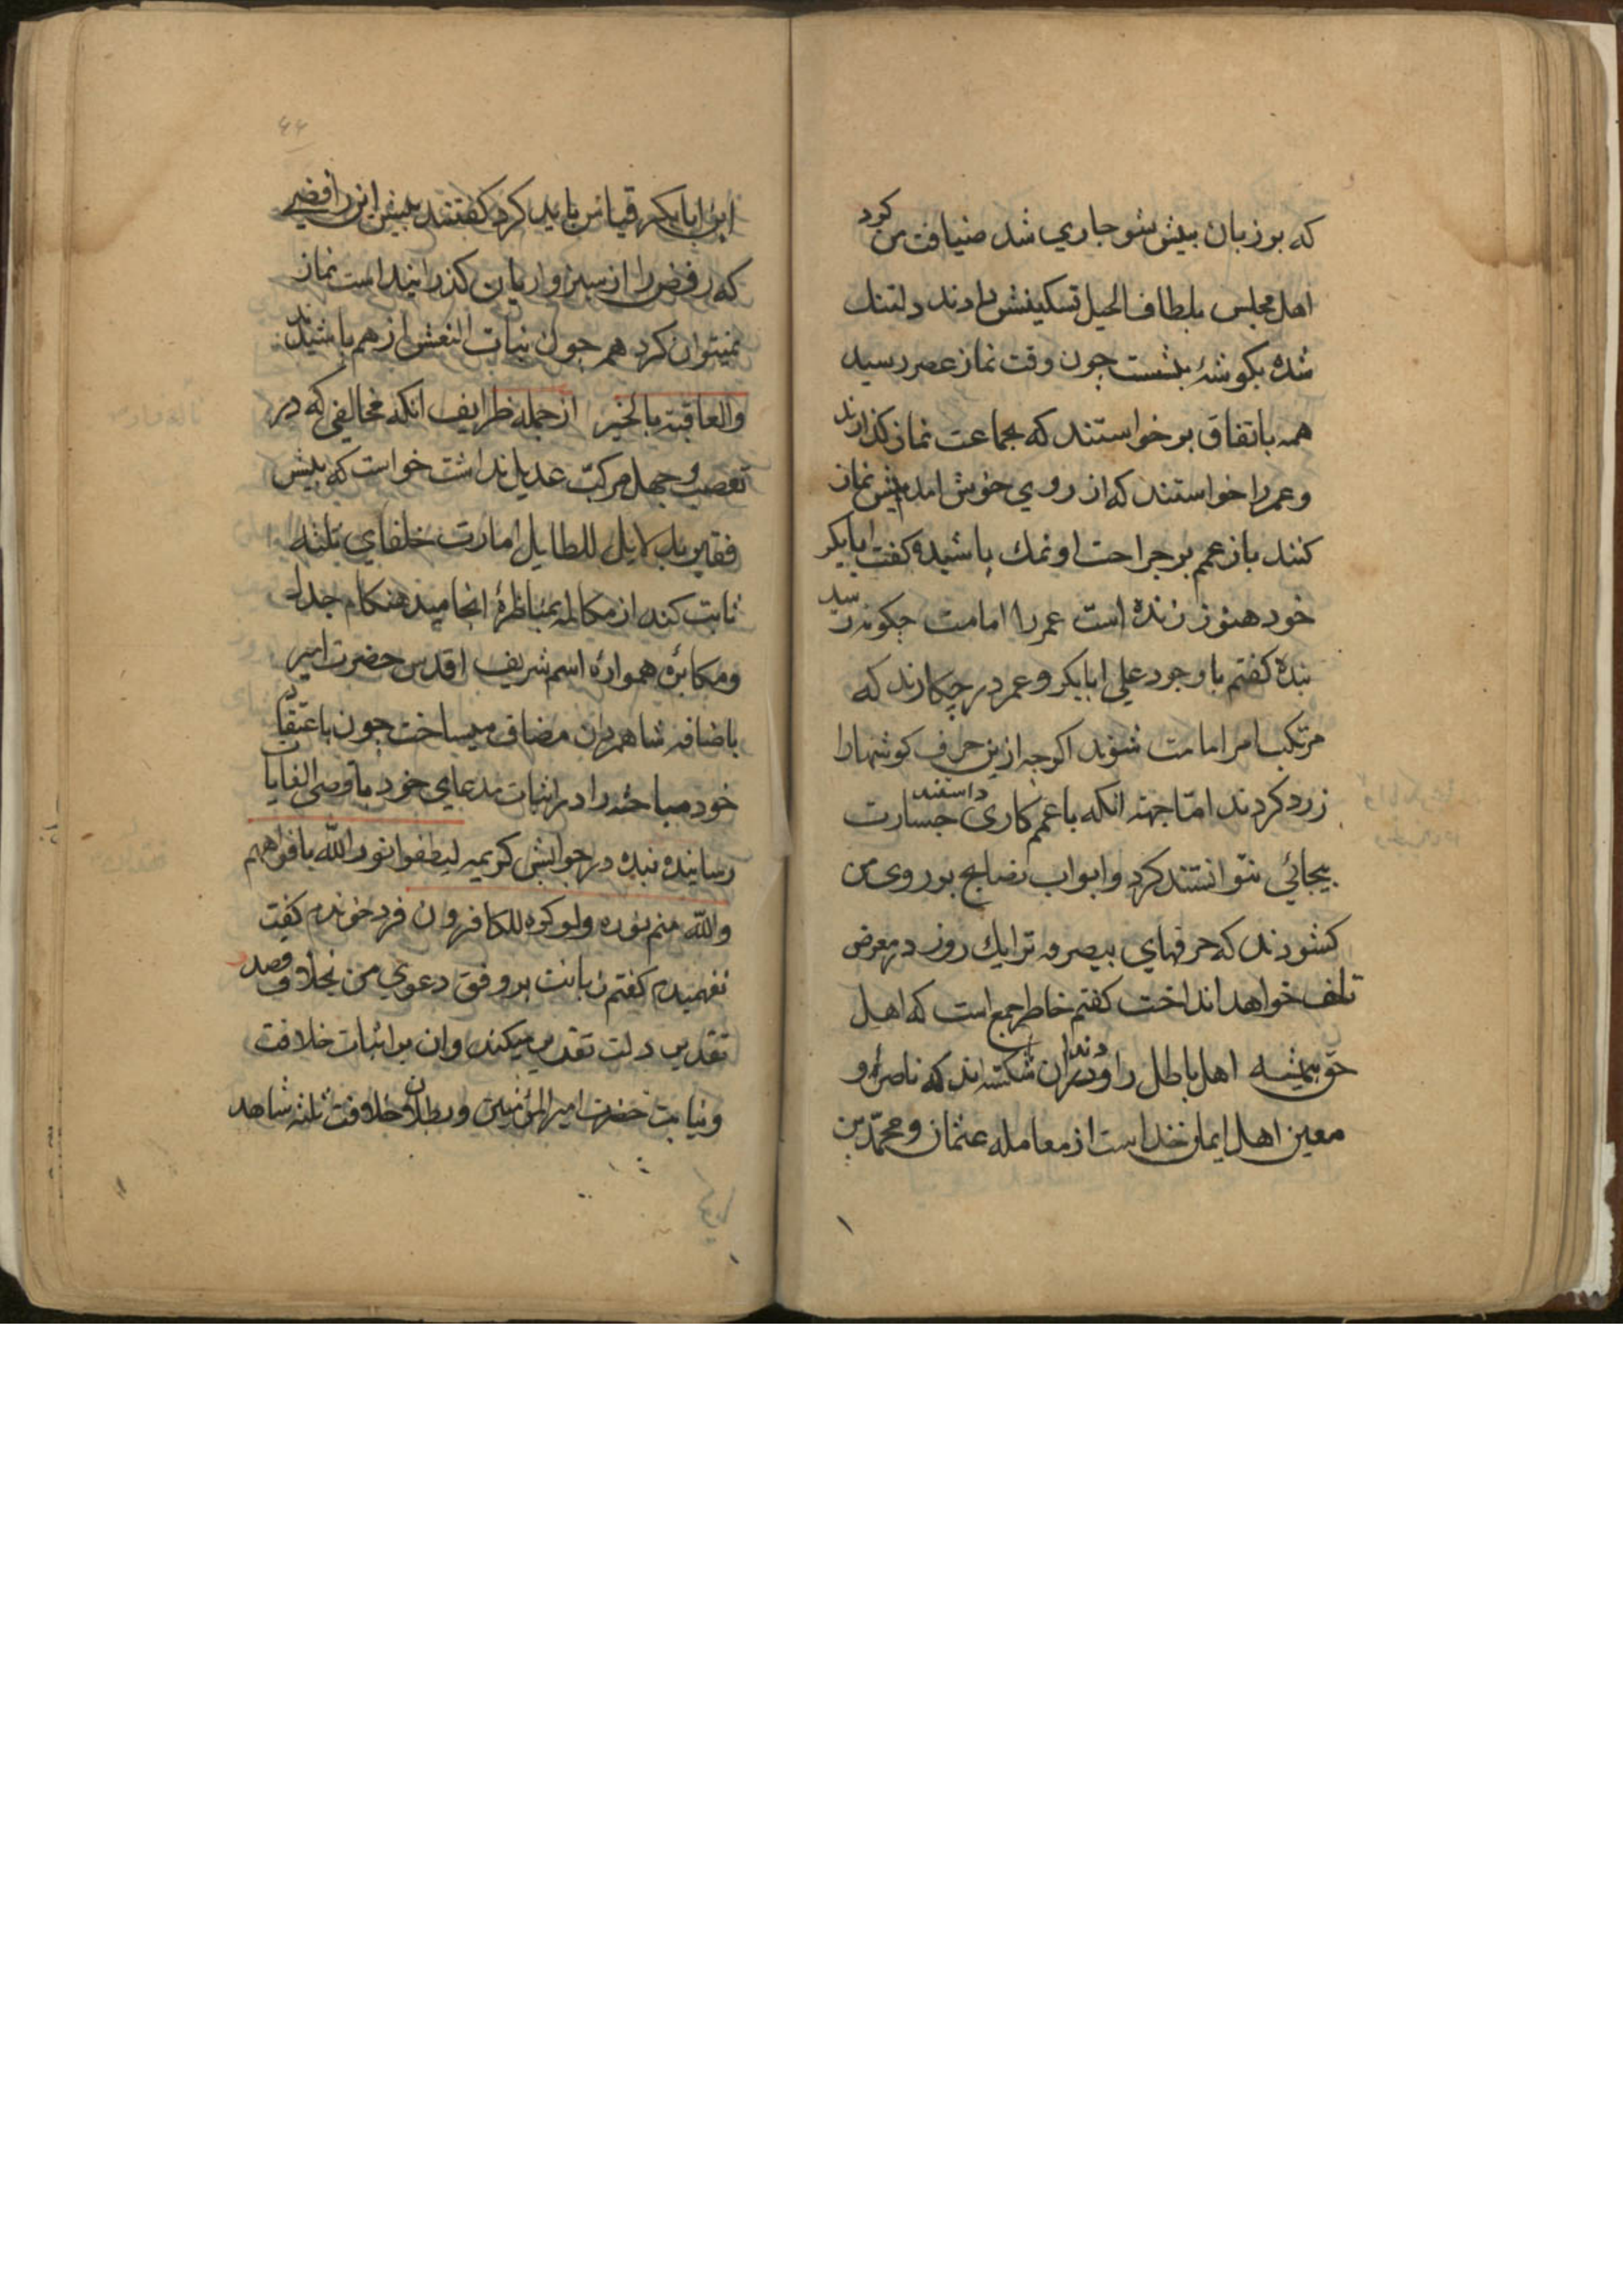 که بر زبان بیش شو جاری شد ضیافت من کرد
اهل مجلس بلطاف الحیل تسکینش دادند دلتنک
شده بکوشهٔ بنشست چون وقت نماز عصر رسید
همه باتفاق برخواستند که بجماعت نماز کذارند
و عمر را خواستند که از روی خوش امد پیش نماز
کنند باز عمم بر جراحت او نمك پاشیده کفت ابابکر
خود هنوز زنده است عمر را امامت چکونه رسد
بنده کفتم با وجود علی ابابکر و عمر در چکارند که
مرتکب امر امامت شوند اکرچه ازین حرف کوشها را
زرد کردند امّا جهته انکه با عمم کاری داشتند جسارت
بیجائی نتوانستند کرد و ابواب نصایح بر روی من
کشودند که حرفهای بیصرفه ترا یك روز در معرض
تلف خواهد انداخت کفتم خاطر جمع است که اهل
حق همیشه اهل باطل را دندان شکسته اند که ناصر و
معین اهل ایمان خداست از معامله عثمان و محمّد بن
٤٤
ابن ابابکر قیاس باید کرد کفتند پیش این رافضی
که رفض را از سبزواریان کذرانیده است نماز
نمیتوان کرد هم چون بنات النعش از هم پاشیدند
والعاقبة بالخیر از جمله ظرایف انکه مخالفی که در
تعصب و جهل مرکبّ عدیل نداشت خواست که پیش
فقیر بدلایل للطایل امارت خلفای ثلثه
ثابت کند از مکالمه بمناظرهٔ انجامید هنکام جدل
و مکابره همواره اسم شریف اقدس حضرت امیر
باضافه شاهمردان مضاف میساخت چون باعتقاد
خود مباحثه را در اثبات مدعای خود باقصی الغایات
رسانیده بنده در جوابش کریمه لیطفوا نور اللّه بافواههم
واللّه متم نوره ولو کره الکافرون فرد خوندم کفت
نفهمیدم کفتم زبانت بر وفق دعوی من بخلاف قصد
تقدیس دلت تقدیس میکند و ان بر اثبات خلافت
و نیابت حضرت امیر المؤمنین و بطلان خلافت ثلثه شاهد